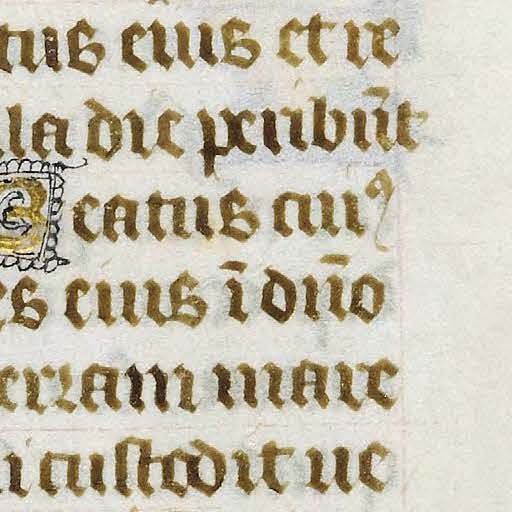 tus eius et re
lla die peribūt
catus cui⁹
es eius ī dn̄o
erram mare
i custodit ue